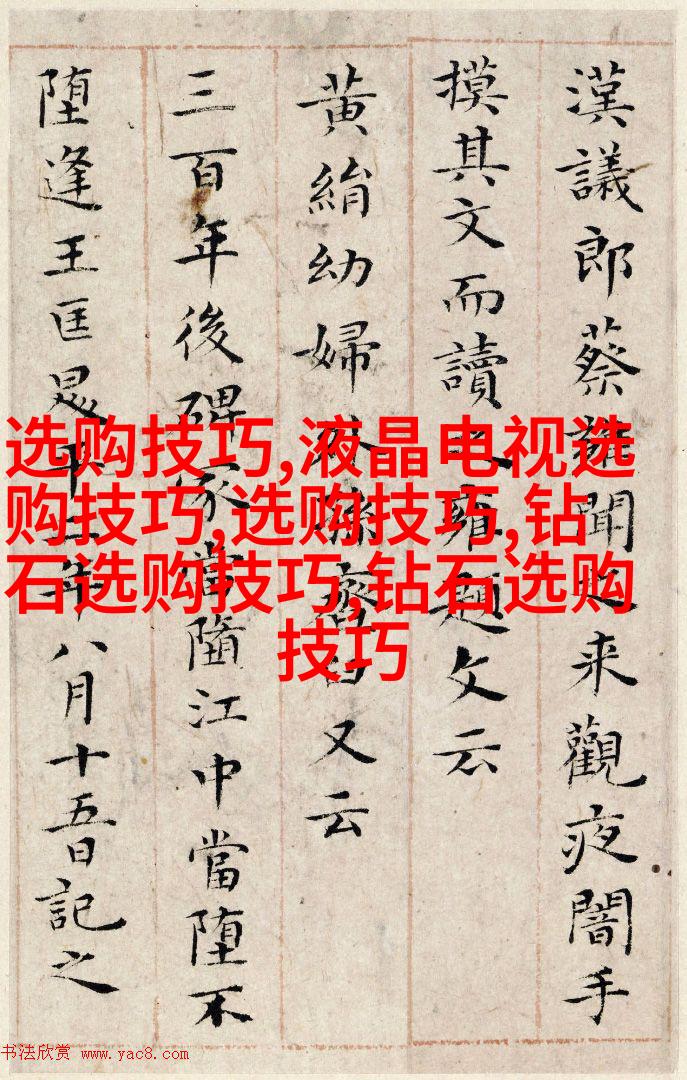 漢議郎蔡雍聞之来觀夜闇手
摸其文而讀之雍題文云
黄絹幼婦外孫齏臼又云
三百年後碑冢當墮江中當墮不
墮逢王匡昇平二年八月十五日記之
选购技巧,液晶电视选
购技巧,选购技巧,钻
石选购技巧,钻石选购
技巧
书法欣赏 www.yac8.com